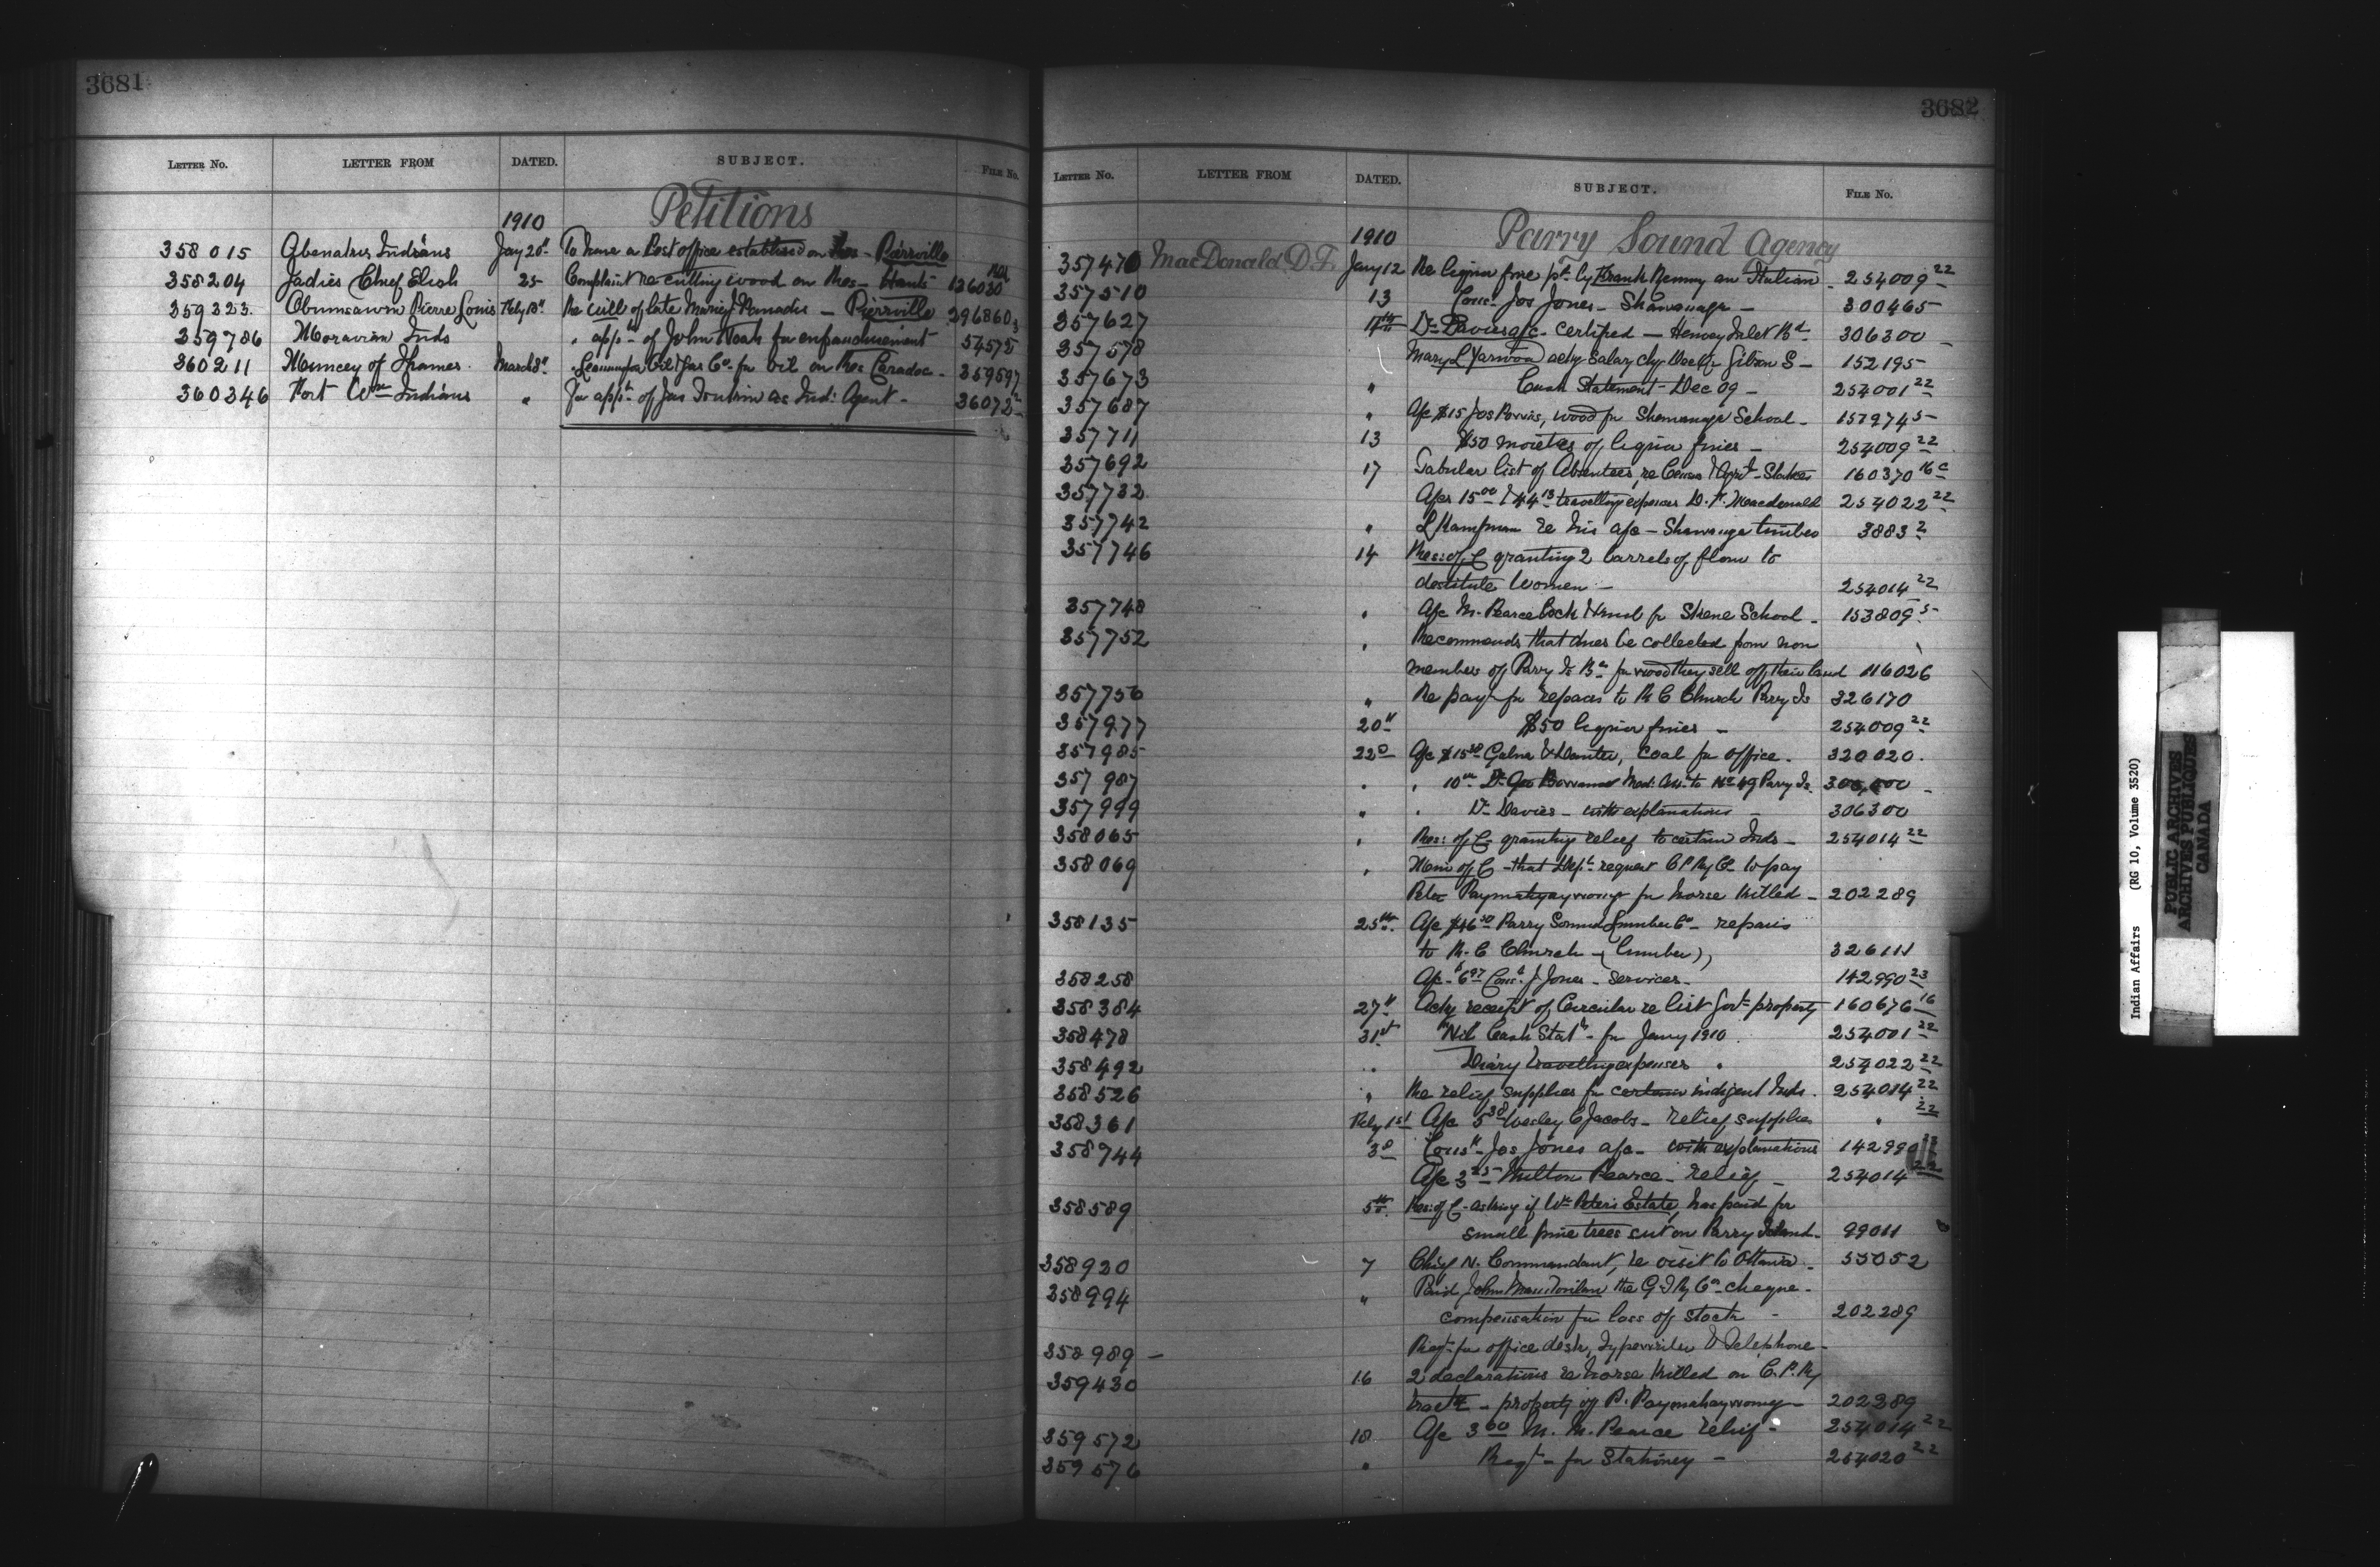 3681
LETTER NO. LETTER FROM DATED. SUBJECT. FILE NO.
Petitions
1910
358015 Abenakis Indians Jany 20" To have a Post office established on Res - Pierrville
358204 Jadies Chief Elish 25 Complaint re cutting wood on Res - Hants 126030
359323 Obumsawin Pierre Louis Feby 18" Re will of late Marie Panadis - Pierrville 296860
359786 Moravian Inds " appn of John Noah for enfranchisement 54575
360211 Muncey of Thames March 8" Leamington Oil & Gas Co. for oil on Res Caradoc 359597
360346 Fort Wm Indians " For appt of Jas as Ind: Agent - 36072
3682
LETTER NO. LETTER FROM DATED. SUBJECT. FILE NO.
Parry Sound Agency
1910
357470 MacDonald D.F. Jany 12 Re liquor fine pd by Frank Remmy an Italian - 254009 22
357510 13 Cons. Jos Jones - Shawanaga - 300465
357627 Dr Davies a/c certified - Henvey Inlet Bd 306300
357578 Mary L Yarwood ackg salary chq Gibson S - 152195
357673 " Cash Statement - Dec 09 - 254001 22
357687 " A/c $15 Jos Pawis, wood for Shawanaga School - 157974 5
357711 13 $50 moieties of liquor fines - 254009 22
357692 17 Tabular list of Absentees, re Census & Agrl Statcs 160370 16c
357732 A/cs 15 00 & 44 13 travelling expenses D. F. Macdonald 254022 22
357742 " L Kampman re his a/c - Shawanaga timber 3883 2
357746 14 Res: of C granting 2 barrels of flour to
destitute Women - 254014 22
357748 " A/c M. Pearce Cock & Hinds for Skene School - 153809 5
357752 " Recommends that dues be collected from non
members of Parry Is Bd for wood they sell off their land 116026
357756 " Re payt for repairs to R C Church Parry Is 326170
357977 20" $50 liquor fines - 254009 22
357985 22d A/c $15 50 Galna & Danter, Coal for office. 320020.
357987 " " 10 00 Dr Geo Borrance Med. Att. to No 49 Parry Is.
357999 " " Dr Davies - with explanations - 306300
358065 " Res: of C granting relief to certain Inds - 254014 22
358069 " Mem of C - that Dept request C P Ry Co to pay
Peter Paymahgaywong for horse killed - 202289
358135 25th A/c $46 50 Parry Sound Lumber Co - repairs
to R. C Church - (lumber), 326111
358258 A/c $6 97 Cons. J Jones - services - 142990 23
358384 27" Ackg receipt of Circular re list Govt property 160676 16
358478 31st "Nil" Cash Statt - for Jany 1910 254001 22
358492 " Diary travelling expenses " 254022 22
358526 " Re relief supplies for certain indigent Inds. 254014 22
358361 Feby 1st A/c 5 38 Wesley C Jacobs - relief supplies " 22
358744 3d Cons. Jos Jones a/c - with explanations 142990
A/c 3 25 Milton Pearce - relief - 254014 22
358589 5th Res: of C - asking if Wm Peter's Estate, has paid for
small pine trees cut on Parry Island - 99011
358920 7 Chief N. Commandant, re visit to Ottawa - 55052
358994 " Paid John the G T Ry Co cheque -
compensation for loss of stock - 202289
358989 - Reqt for office desk, typewriter & telephone -
359430 16 2 declarations re horse killed on C. P. Ry
track - property of P. Paymahaywong - 202289
359572 18 A/c 3 00 M. M. Pearce relief - 254014 22
359576 " Reqt - for Stationery - 254020 22
Indian Affairs (RG 10, Volume 3520)
PUBLIC ARCHIVES
ARCHIVES PUBLIQUES
CANADA